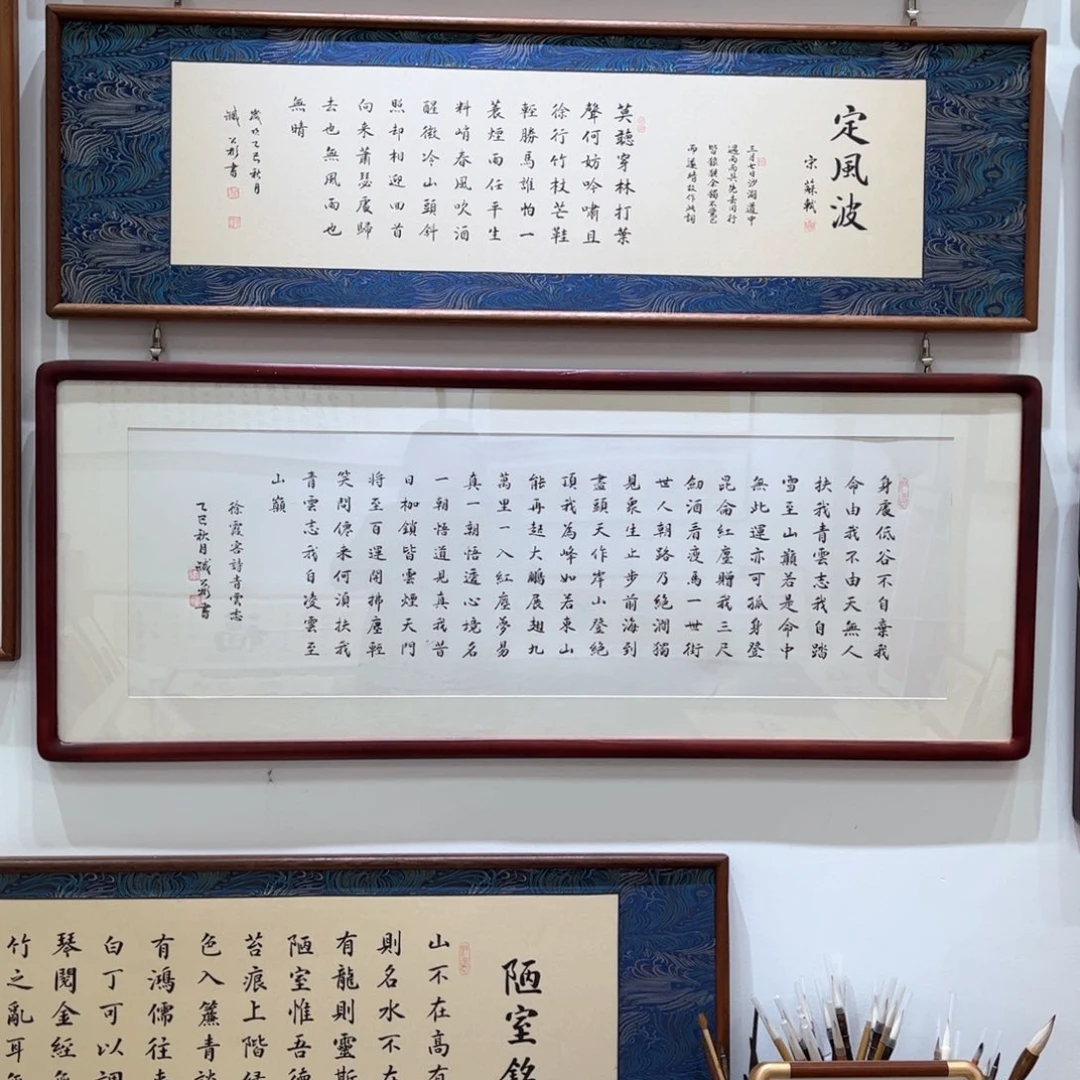 定風波
宋 蘇軾
三月七日沙湖道中
遇雨雨具先去同行
皆狼狽余獨不覺已
而遂晴故作此詞
莫聽穿林打葉
聲何妨吟嘯且
徐行竹杖芒鞋
輕勝馬誰怕一
蓑煙雨任平生
料峭春風吹酒
醒微冷山頭斜
照却相迎回首
向来蕭瑟處歸
去也無風雨也
無晴
歲次乙巳秋月
書
身處低谷不自棄我
命由我不由天無人
扶我青雲志我自踏
雪至山巔若是命中
無此運亦可孤身登
昆侖紅塵贈我三尺
劍酒看瘦馬一世街
世人朝路乃絕澗獨
見衆生止步前海到
盡頭天作岸山登絕
頂我為峰如若東山
能再起大鵬展翅九
萬里一入紅塵夢易
真一朝悟透心境名
一朝悟道見真我昔
日枷鎖皆雲煙天門
將至百運閉拂塵輕
笑問僊来何須扶我
青雲志我自凌雲至
山巔
徐霞客詩青雲志
乙巳秋月 書
陋室銘
山不在高有
則名水不在
有龍則靈斯
陋室惟吾德
苔痕上階緑
色入簾青談
有鴻儒往来
白丁可以調
琴閱金經無
竹之亂耳無